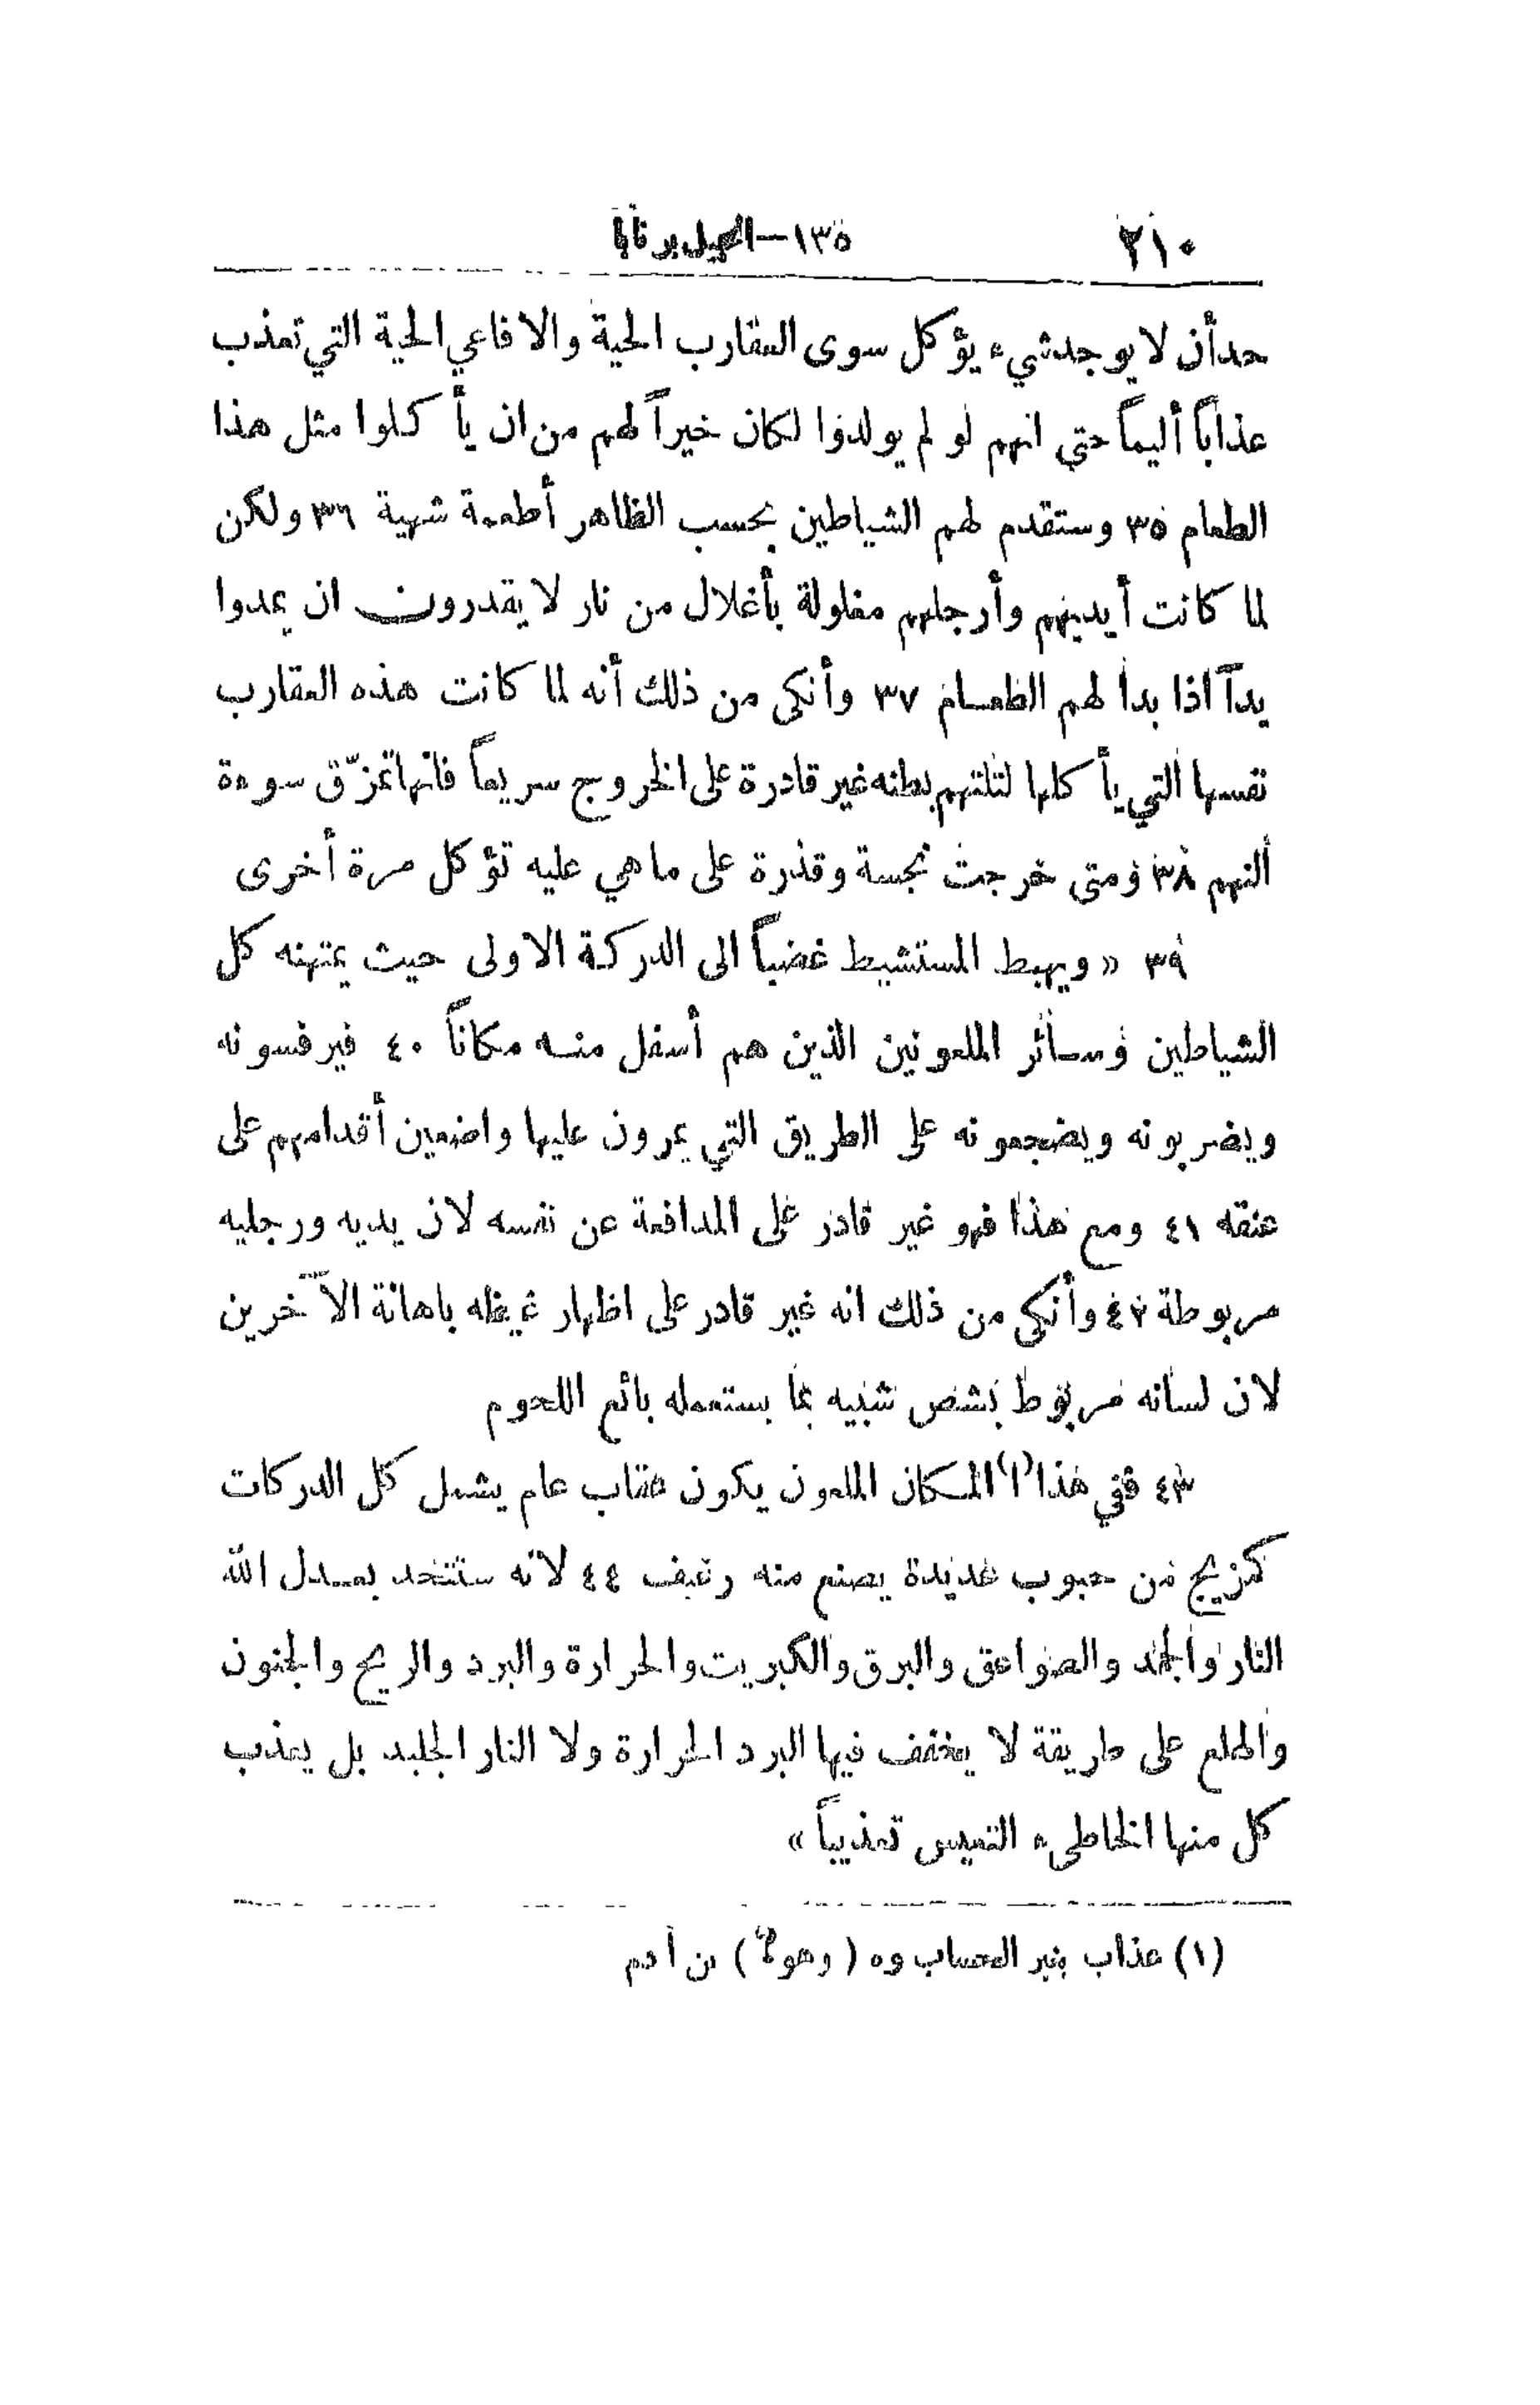 ٢١٠ ١٣٥ — انجيل برنابا
حد أن لا يوجد شيء يؤكل سوى العقارب الحية والافاعي الحية التي تعذب
عذاباً أليماً حتى انهم لو لم يولدوا لكان خيراً لهم من ان يأكلوا مثل هذا
الطعام ٣٥ وستقدم لهم الشياطين بحسب الظاهر أطعمة شهية ٣٦ ولكن
لما كانت أيديهم وأرجلهم مغلولة بأغلال من نار لا يقدرون ان يمدوا
يداً اذا بدا لهم الطعام ٣٧ وأنكى من ذلك أنه لما كانت هذه العقارب
نفسها التي يأكلها لتلتهم بطنه غير قادرة على الخروج سريعاً فانها تمزّق سوءة
النهم ٣٨ ومتى خرجت نجسة وقذرة على ما هي عليه تؤكل مرة أخرى
٣٩ « ويهبط المستشيط غضباً الى الدركة الاولى حيث يمتهنه كل
الشياطين وسائر الملعونين الذين هم أسفل منه مكاناً ٤٠ فيرفسونه
ويضربونه ويضجعونه على الطريق التي يمرون عليها واضعين أقدامهم على
عنقه ٤١ ومع هذا فهو غير قادر على المدافعة عن نفسه لان يديه ورجليه
مربوطة ٤٢ وأنكى من ذلك انه غير قادر على اظهار غيظه باهانة الآخرين
لان لسانه مربوط بشص شبيه بما يستعمله بائع اللحوم
٤٣ ففي هذا (١) المكان الملعون يكون عقاب عام يشمل كل الدركات
كمزيج من حبوب عديدة يصنع منه رغيف ٤٤ لانه ستتحد بعدل الله
النار والجمد والصواعق والبرق والكبريت والحرارة والبرد والريح والجنون
والهلع على طريقة لا يخفف فيها البرد الحرارة ولا النار الجليد بل يعذب
كل منها الخاطىء التعيس تعذيباً »
(١) عذاب بغير الحساب وه ( وهو ) بن آدم